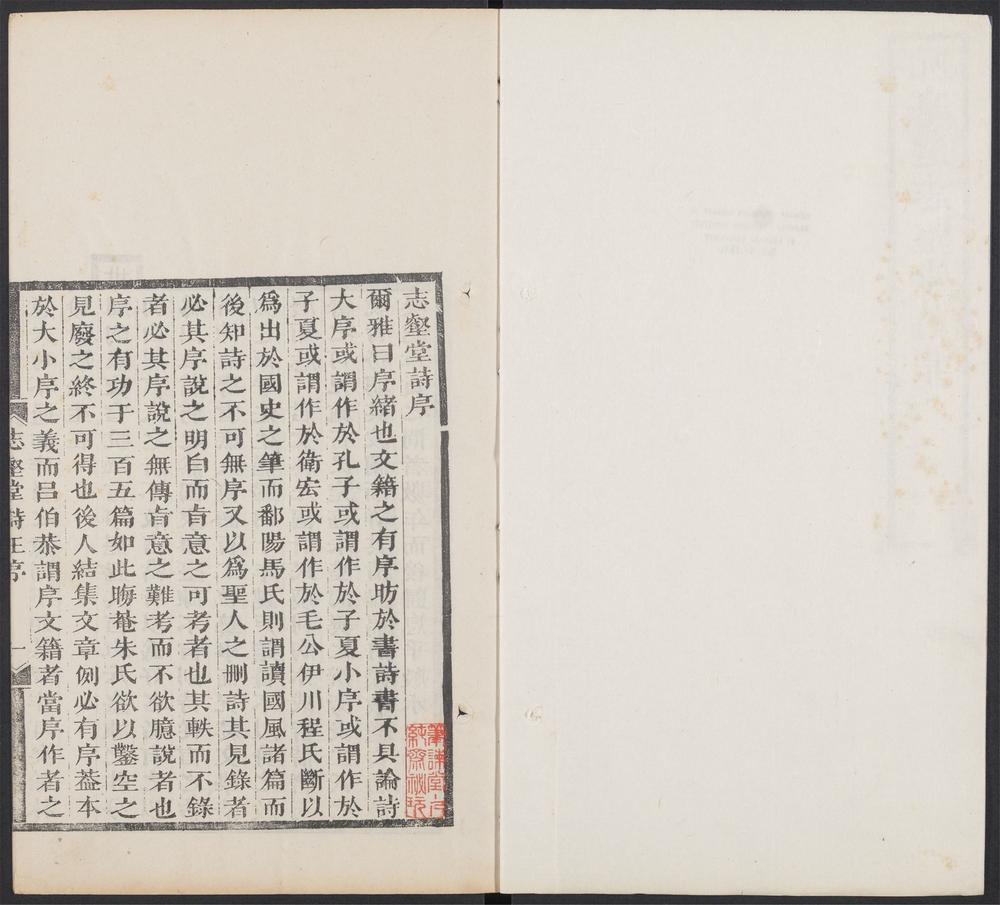 志壑堂詩序
爾雅曰序緒也文籍之有序昉於書詩書不具論詩
大序或謂作於孔子或謂作於子夏小序或謂作於
子夏或謂作於衛宏或謂作於毛公伊川程氏斷以
爲出於國史之筆而鄱陽馬氏則謂讀國風諸篇而
後知詩之不可無序又以爲聖人之刪詩其見錄者
必其序說之明白而㫖意之可考者也其軼而不錄
者必其序說之無傳㫖意之難考而不欲臆說者也
序之有功于三百五篇如此晦菴朱氏欲以鑿空之
見廢之終不可得也後人結集文章例必有序葢本
於大小序之義而呂伯恭謂序文籍者當序作者之
志壑堂詩王序
一